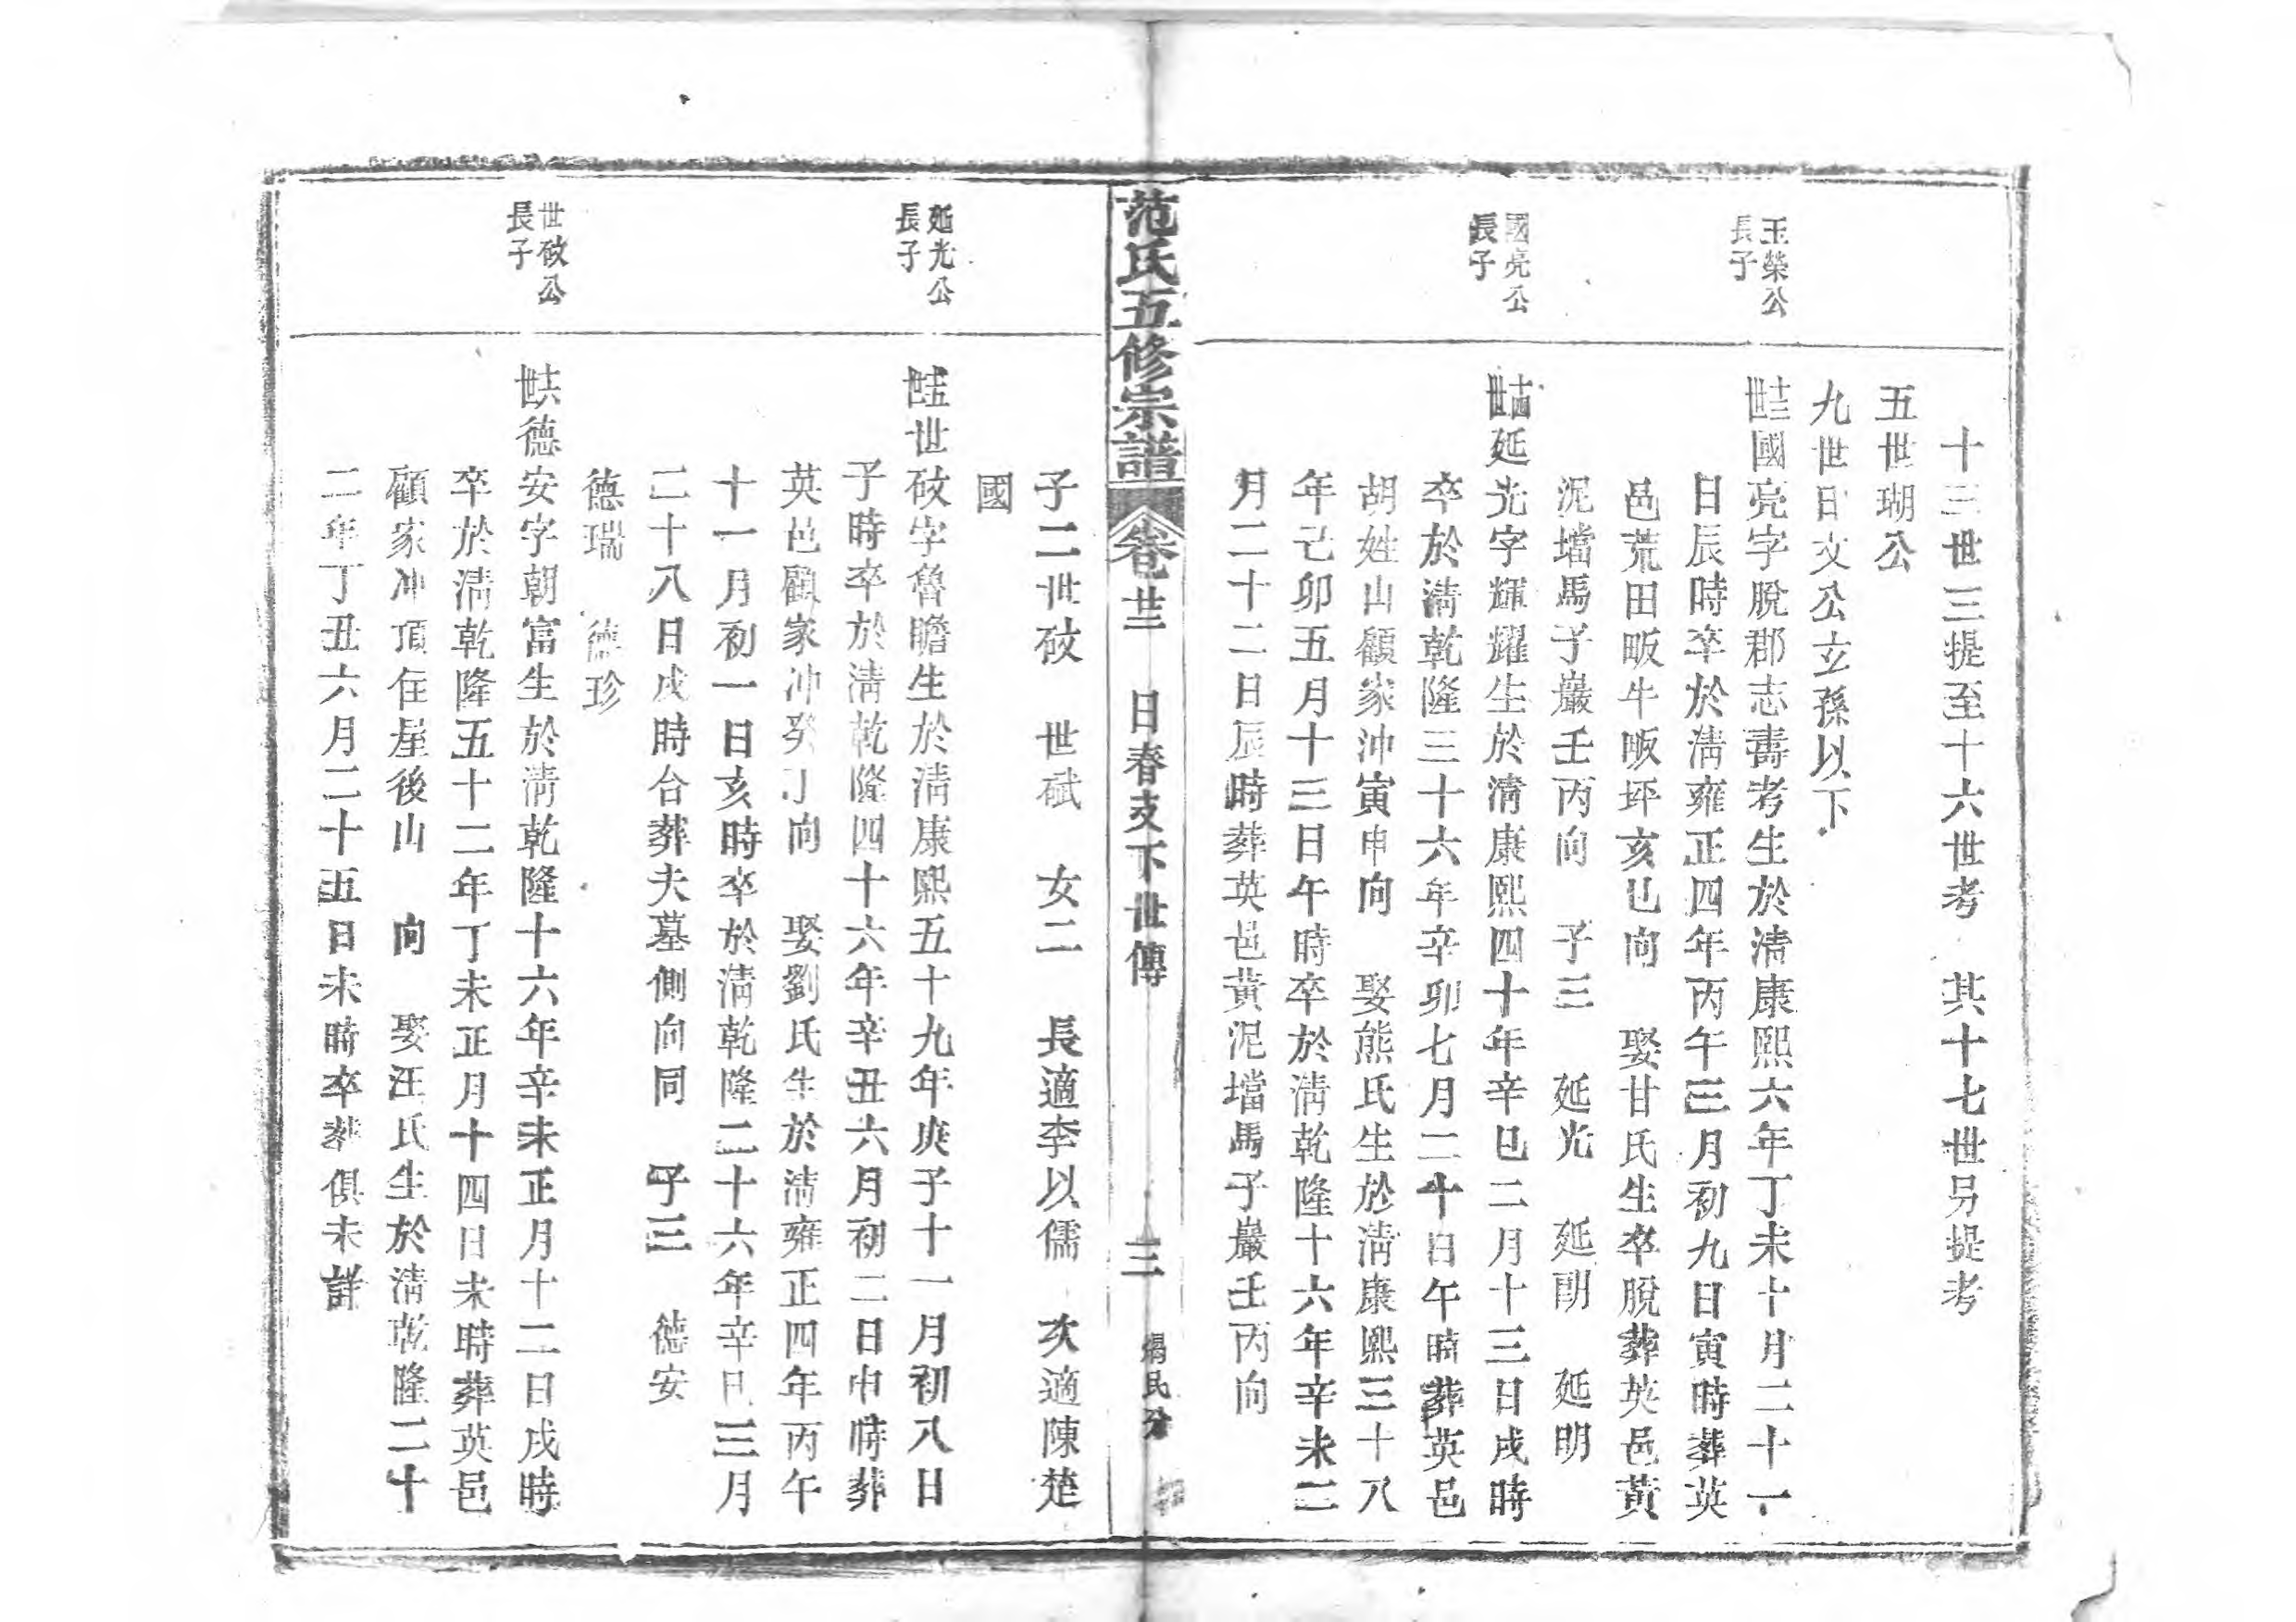 十三世三提至十六世考　其十七世另提考
五世瑚公
九世日文公玄孫以下
玉榮公
長子
十三世國亮字脫郡志壽考生於淸康熙六年丁未十月二十一
日辰時卒於淸雍正四年丙午三月初九日寅時葬英
邑荒田畈牛畈坪亥巳向　娶甘氏生卒脫葬英邑黃
泥壋馬子巖壬丙向　子三　延光　延　延明
國亮公
長子
十四世延光字輝耀生於淸康熙四十年辛巳二月十三日戌時
卒於淸乾隆三十六年辛卯七月二十日午時葬英邑
胡姓山顧家沖寅申向　娶熊氏生於淸康熙三十八
年己卯五月十三日午時卒於淸乾隆十六年辛未二
月二十二日辰時葬英邑黃泥壋馬子巖壬丙向
范氏五修宗譜　卷廿三　日春支下世傳　三
子二世砇　世斌　女二　長適李以儒　次適陳楚
國
延光公
長子
十五世世砇字魯瞻生於淸康熙五十九年庚子十一月初八日
子時卒於淸乾隆四十六年辛丑六月初二日申時葬
英邑顧家冲癸丁向　娶劉氏生於淸雍正四年丙午
十一月初一日亥時卒於淸乾隆二十六年辛巳三月
二十八日戌時合葬夫墓側向同　子三　德安
德瑞　德珍
世砇公
長子
十六世德安字朝富生於淸乾隆十六年辛未正月十二日戌時
卒於淸乾隆五十二年丁未正月十四日未時葬英邑
顧家冲頂住屋後山　向　娶汪氏生於淸乾隆二十
二年丁丑六月二十五日未時卒葬俱未詳